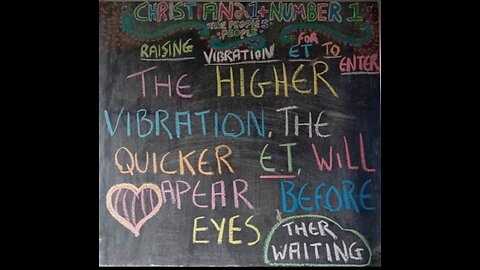 CHRISTIAN 21 + NUMBER 1
THE PEOPLE'S
PEOPLE
RAISING VIBRATION FOR ET TO ENTER
THE HIGHER
VIBRATION, THE
QUICKER E.T, WILL
APEAR BEFORE
EYES
THER
WAITING